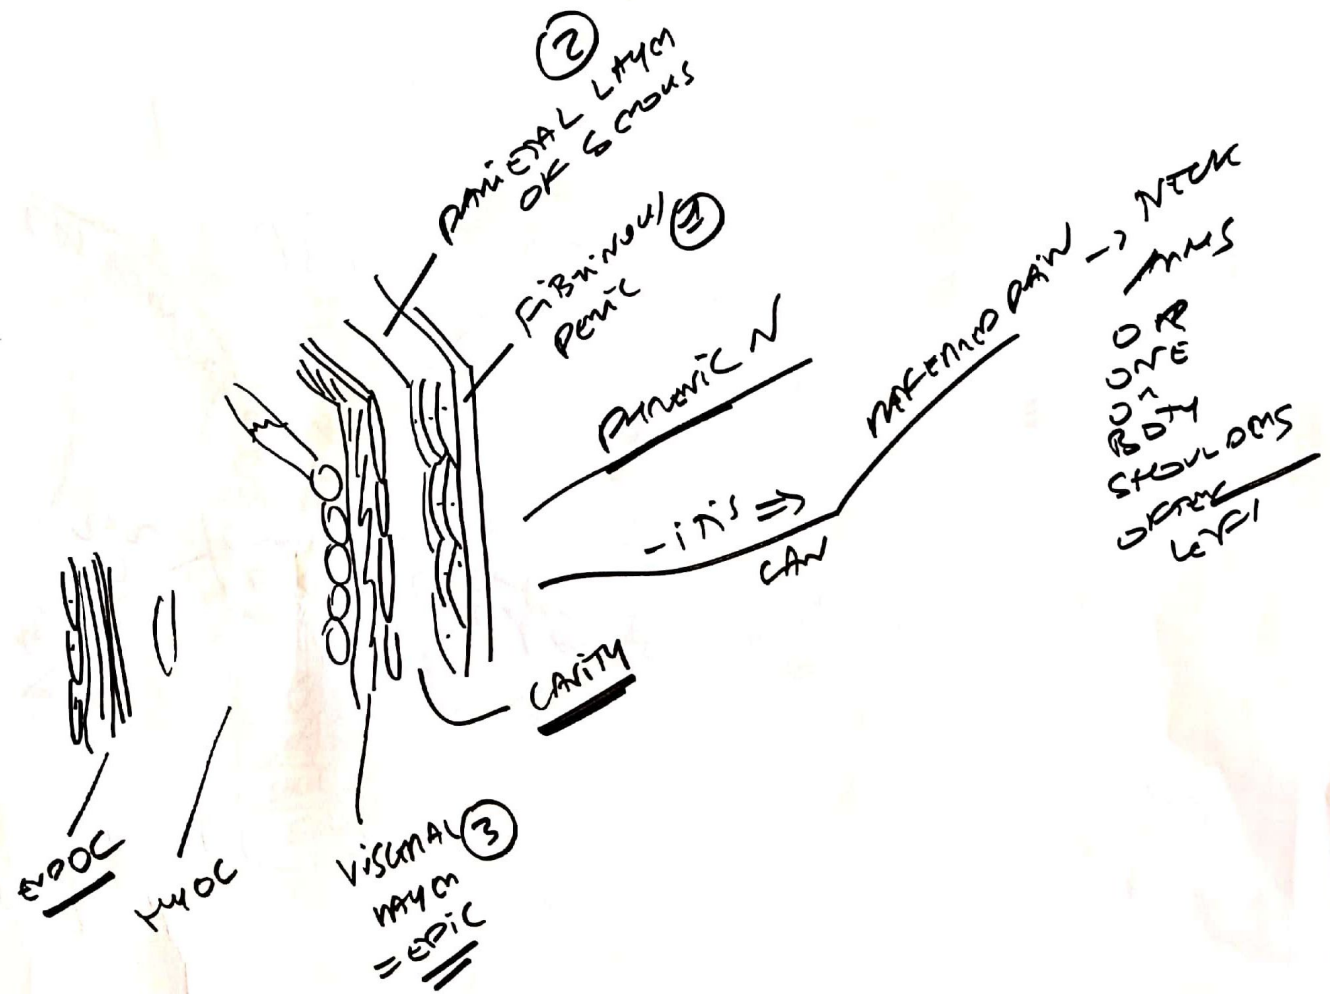 2
PARIETAL LAYER
OF SEROUS
FIBRINOUS 1
PERIC
PHRENIC N
-iTiS ⇒
CAN
REFERRED PAIN → NECK
ARMS
OR
ONE
OR
BOTH
SHOULDERS
OFTEN
LEFT
CAVITY
ENDOC
MYOC
VISCERAL 3
LAYER
= EPIC